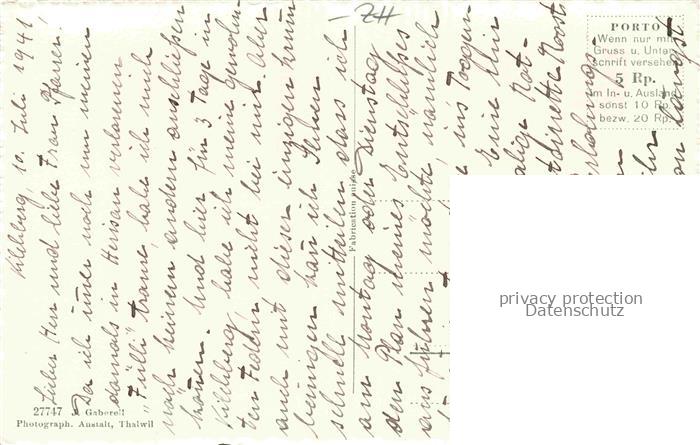 Kilchberg, 10. Juli 1941
Lieber Herr und liebe Frau Pfarrer!
Da ich immer noch um meinen
damals in Herisau verlorenen
"Fülli" traure, habe ich mich
noch keinem andern anschließen
können. Und hier für 3 Tage in
Kilchberg habe ich meine gewohn-
ten Federn nicht bei mir. Aber
auch mit dieser einzigen krum-
beinigen kann ich Ihnen
schnell mitteilen, dass ich
am Montag oder Dienstag
den Plan meines Entschlusses
ausführen möchte, nämlich
ins Toggen
Eine
Rat-
Roost
- ZH
PORTO
Wenn nur mit
Gruss u. Unter-
schrift versehen
5 Rp.
im In- u. Ausland
sonst 10 Rp.
bezw. 20 Rp.
Fabrication suisse
privacy protection
Datenschutz
27747 J. Gaberell
Photograph. Anstalt, Thalwil